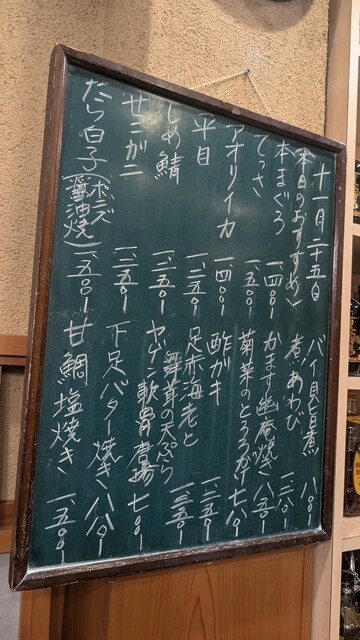 十一月二十五日
〈本日のおすすめ〉
本まぐろ 一、四〇〇
てっさ 一、五〇〇
アオリイカ 一、四〇〇
平目 一、二五〇
しめ鯖 一、二五〇
せこがに 一、二五〇
たら白子(ポン酢 醤油焼) 一、五〇〇
バイ貝旨煮 八〇〇
煮あわび
かます幽庵焼き 八五〇
菊菜のとろろがけ 七八〇
酢ガキ 一、二五〇
足赤海老と舞茸の天ぷら 一、三五〇
ヤゲン軟骨唐揚 七〇〇
下足バター焼き 八八〇
甘鯛塩焼き 一、五〇〇